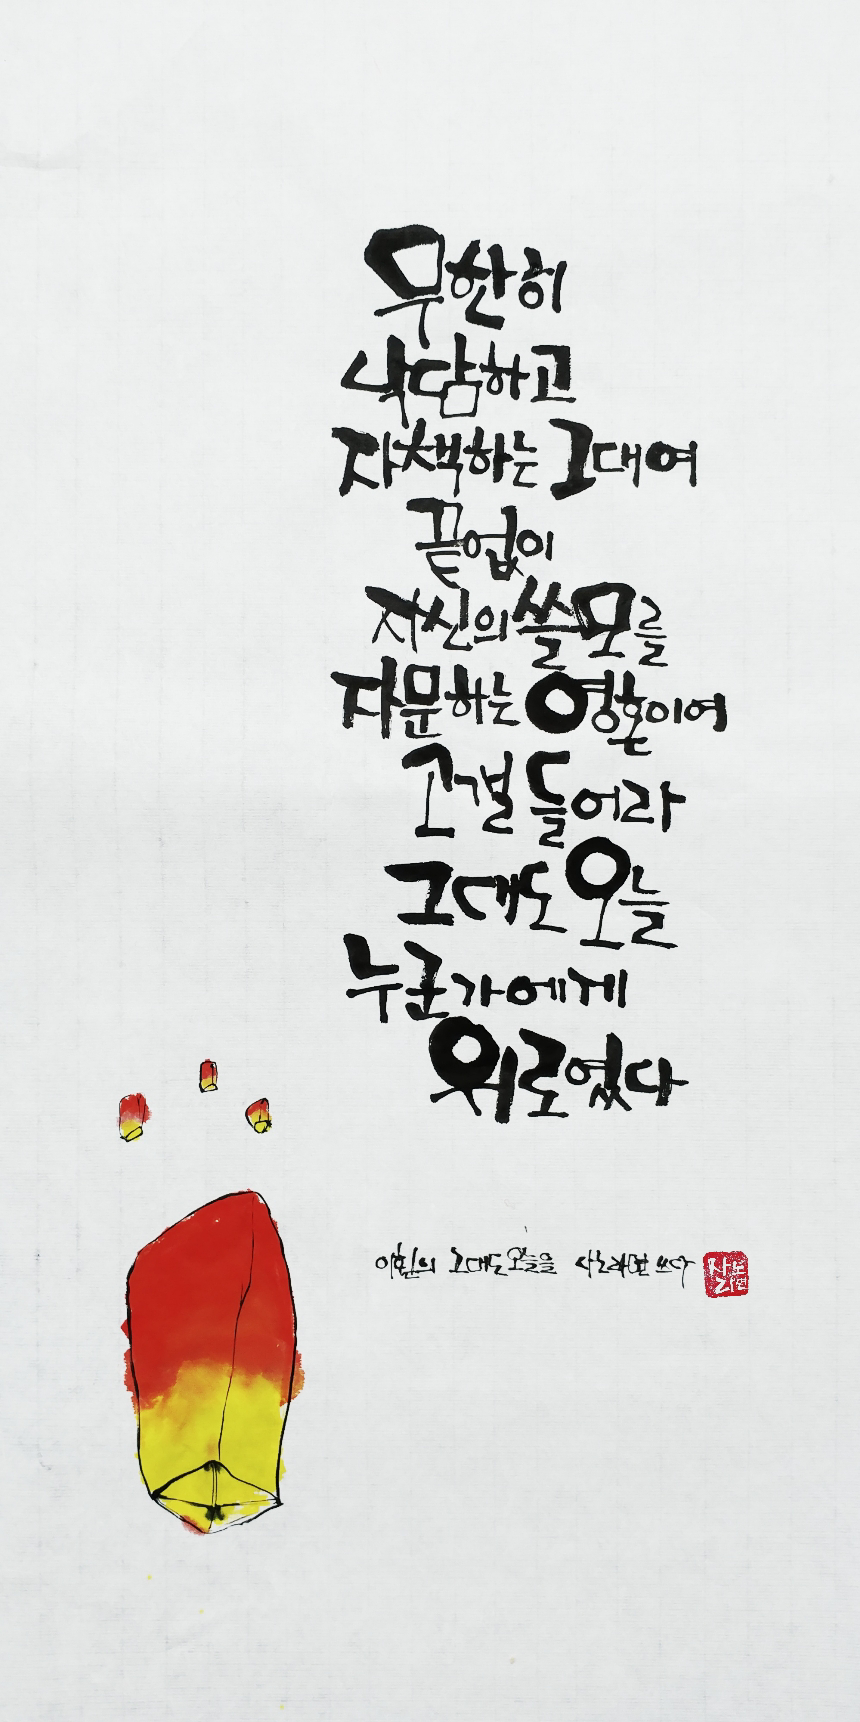 무한히
낙담하고
자책하는 그대여
끝없이
자신의 쓸모를
자문하는 영혼이여
고갤 들어라
그대도 오늘
누군가에게
위로였다
그대도 오늘을 쓰다